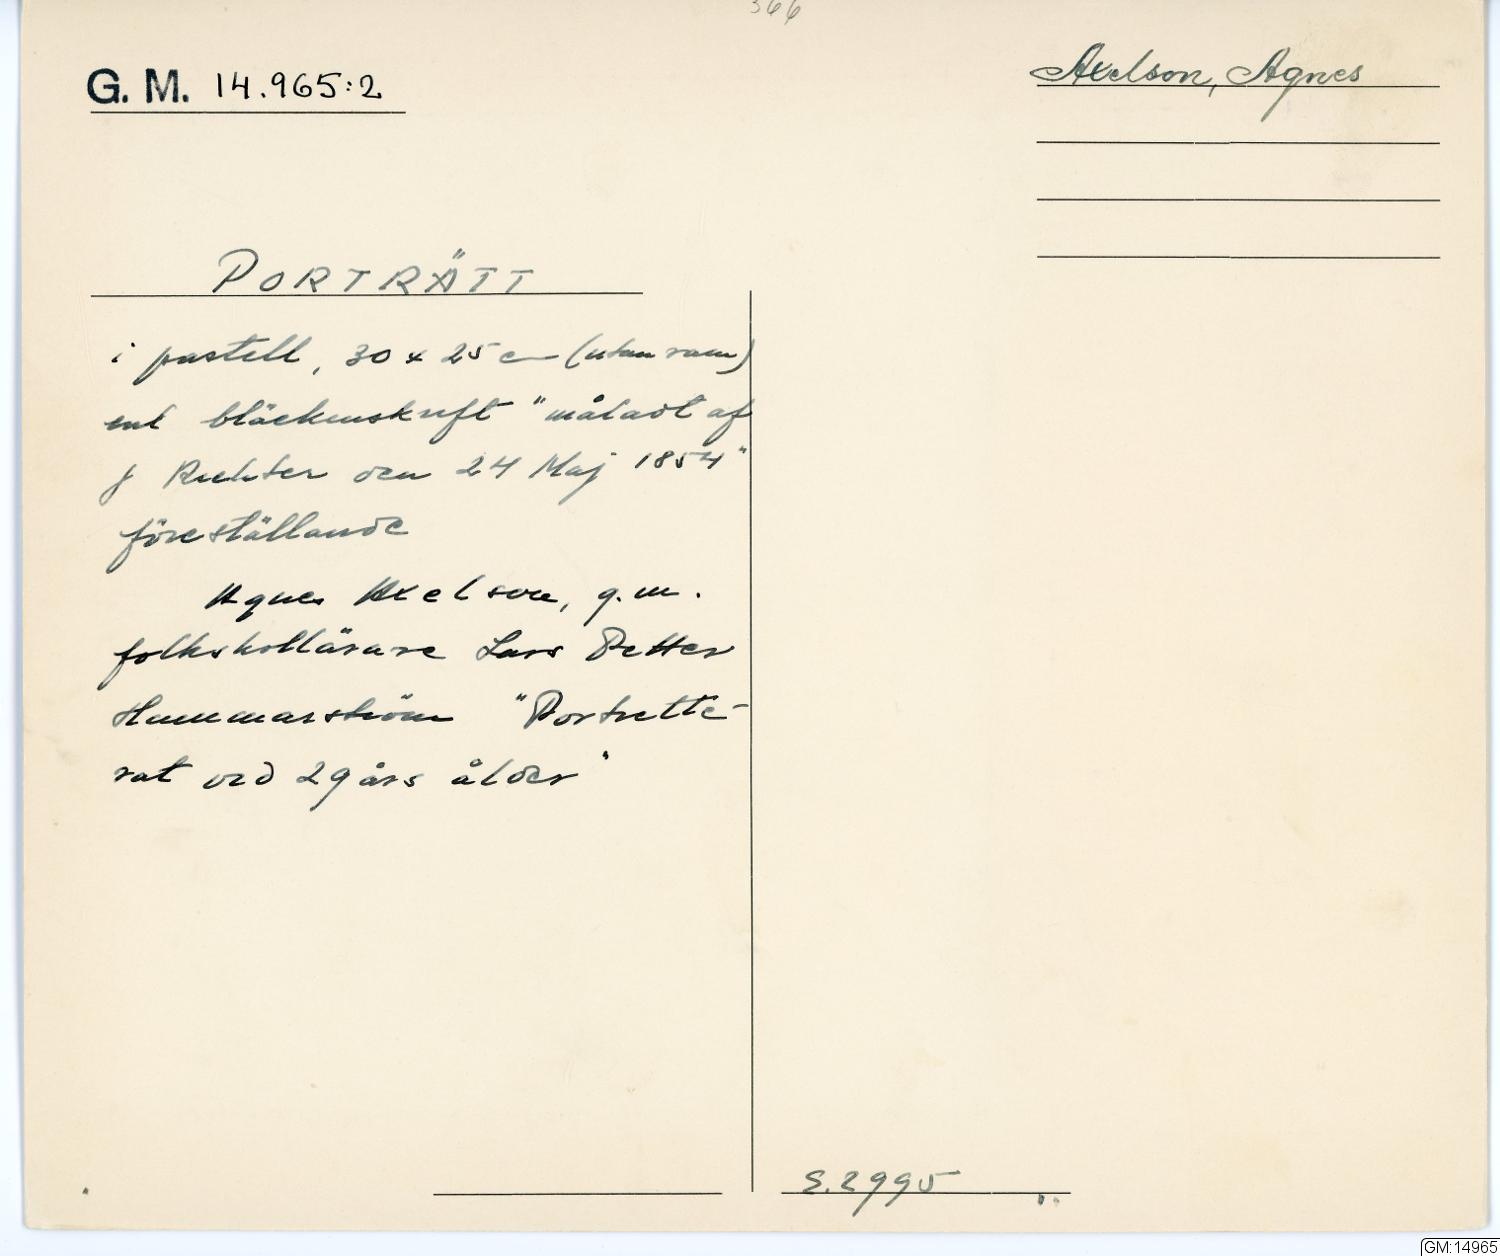 366
G. M. 14.965:2
Axelson, Agnes
PORTRÄTT
i pastell, 30 x 25 cm (utan ram)
enl bläckinskrift "måladt af
J Richter den 24 Maj 1854"
föreställande
Agnes Axelson, g.m.
folkskollärare Lars Petter
Hammarström "Portrette-
rat vid 29 års ålder"
S.2995
GM:14965